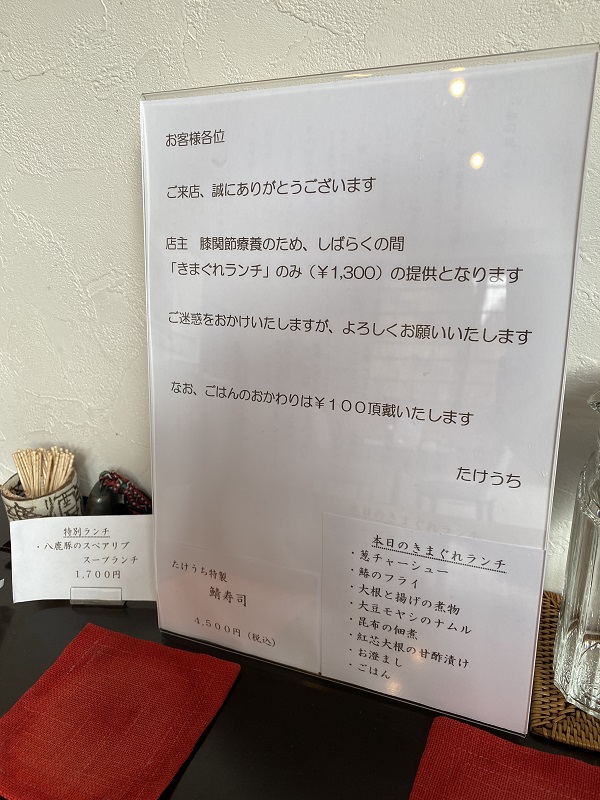 お客様各位
ご来店、誠にありがとうございます
店主　膝関節療養のため、しばらくの間
「きまぐれランチ」のみ（￥1,300）の提供となります
ご迷惑をおかけいたしますが、よろしくお願いいたします
なお、ごはんのおかわりは￥１００頂戴いたします
たけうち
特別ランチ
・八鹿豚のスペアリブ
スープランチ
1,700円
たけうち特製
鯖寿司
4,500円（税込）
本日のきまぐれランチ
・葱チャーシュー
・鰆のフライ
・大根と揚げの煮物
・大豆モヤシのナムル
・昆布の佃煮
・紅芯大根の甘酢漬け
・お澄まし
・ごはん